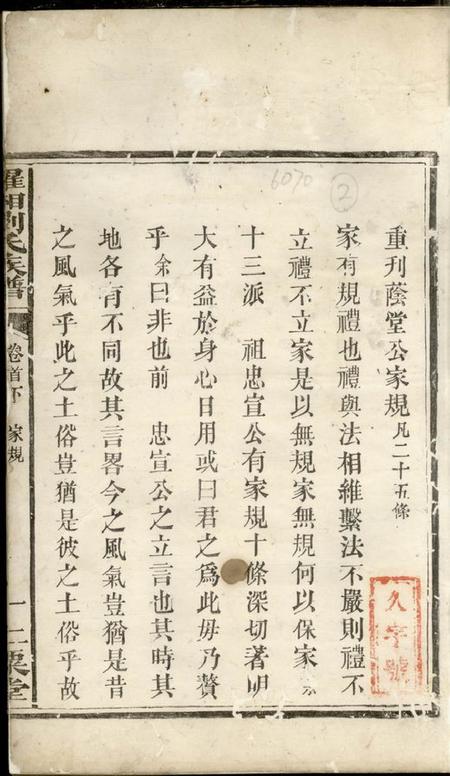 重刊蔭堂公家規凡二十五條
家有規禮也禮與法相維繫法不嚴則禮不
立禮不立家是以無規家無規何以保家 余
十三派 祖忠宣公有家規十條深切著明
大有益於身心日用或曰君之為此毋乃贅
乎余曰非也前 忠宣公之立言也其時其
地各有不同故其言畧今之風氣豈猶是昔
之風氣乎此之土俗豈猶是彼之土俗乎故
羅田劉氏族譜
卷首下 家規
一
栗堂
6070
2
久字號